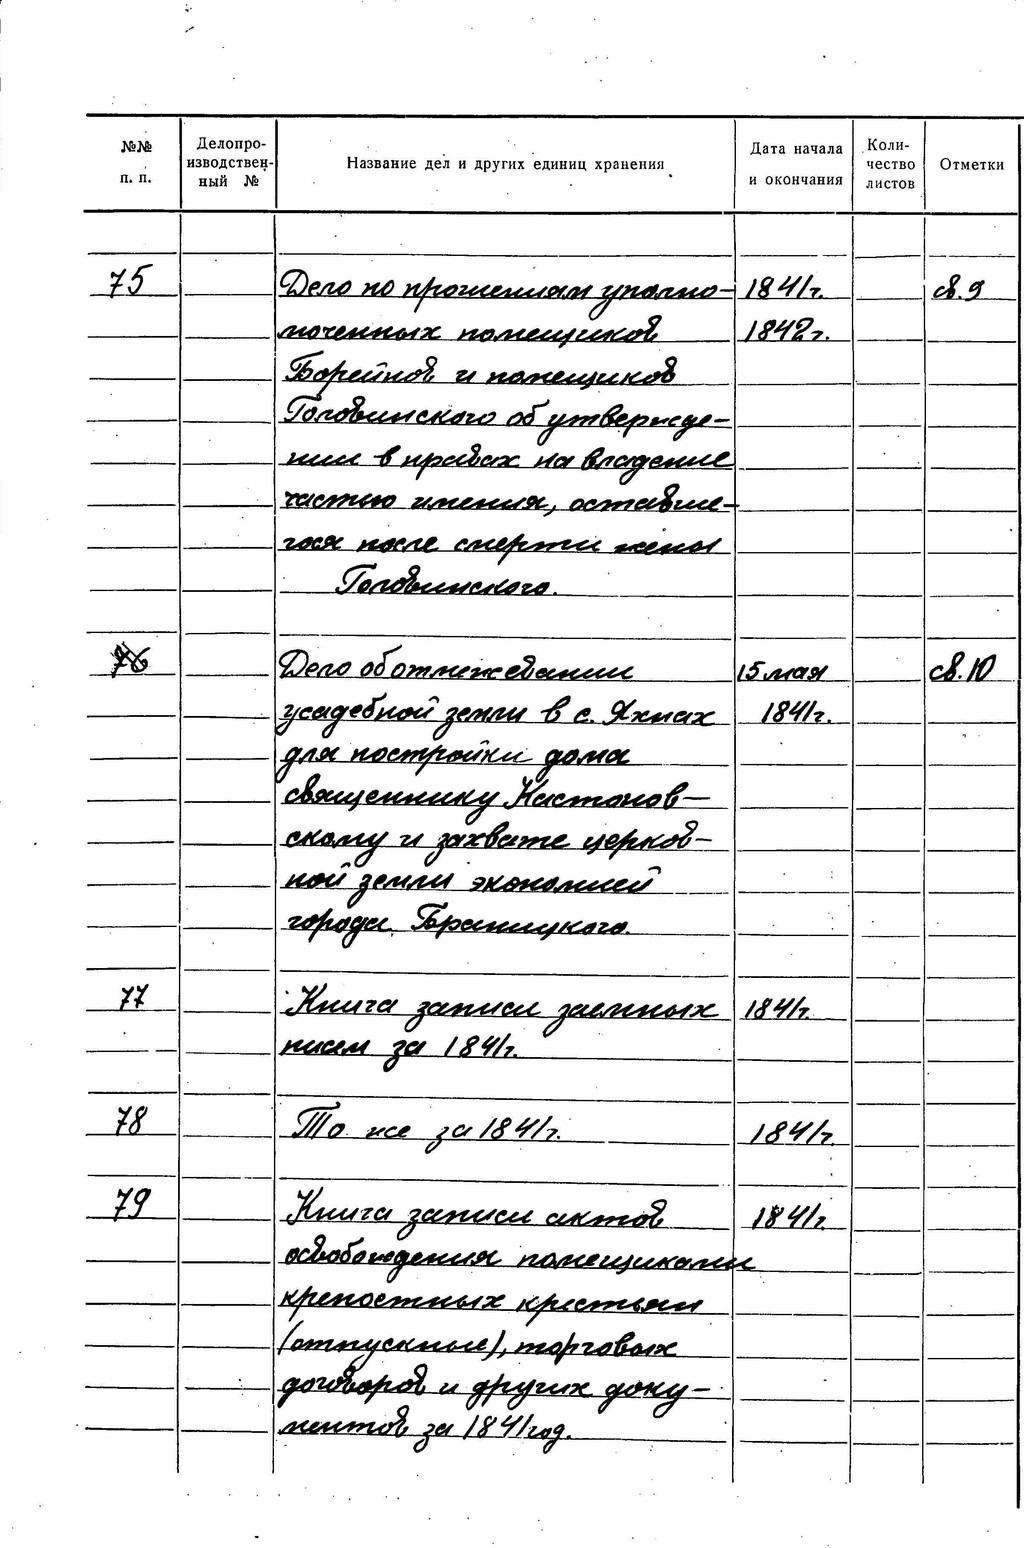 №№ п. п.
Делопро-
изводствен-
ный №
Название дел и других единиц хранения
Дата начала
и окончания
Коли-
чество
листов
Отметки
75 Дело по прошениям уполно- 1841г. св.9
моченных помещиков 1842г.
Борейпов и помещиков
Головинского об утвержде-
нии в правах на владение
частью имения, оставше-
гося после смерти жены
Головинского.
76 Дело об отмежевании 15 мая св.10
усадебной земли в с. Яхнах 1841г.
для постройки дома
священнику Кистонов-
скому и захвате церков-
ной земли экономией
города Браницкого.
77 Книга записи заемных 1841г.
писем за 1841г.
78 То же за 1841г. 1841г.
79 Книга записи актов 1841г.
освобождения помещиками
крепостных крестьян
(отпускные), торговых
договоров и других доку-
ментов за 1841год.